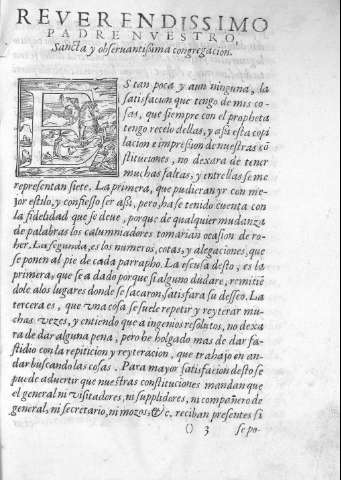 REVERENDISSIMO
PADRE NVESTRO,
Sancta y obseruantissima congregacion.
E Stan poca y aun ninguna, la
satisfacion que tengo de mis co-
sas, que siempre con el propheta
tengo recelo dellas, y assi esta copi
lacion e impresion de nuestras cõ
stituciones, no dexara de tener
muchas faltas, y entrellas se me
representan siete. La primera, que pudieran yr con me-
jor estilo, y confiesso ser assi, pero, ha se tenido cuenta con
la fidelidad que se deue, porque de qualquier mudança
de palabras los calumniadores tomarian ocasion de ro-
her. La segunda, es los numeros, cotas, y alegaciones, que
se ponen al pie de cada parrapho. La escusa desto, es la
primera, que se a dado porque si alguno dudare, remitiẽ
dole a los lugares donde se sacaron, satisfara su desseo. La
tercera es, que vna cosa se suele repetir y reyterar mu-
chas vezes, y entiendo que a ingenios resolutos, no dexa
ra de dar alguna pena, pero he holgado mas de dar fa-
stidio con la repiticion y reyteracion, que trabajo en an-
dar buscando las cosas. Para mayor satisfacion desto se
puede aduertir que nuestras constituciones mandan que
el general ni visitadores, ni supplidores, ni compañero de
general, ni secretario, ni moços, &c. reciban presentes si
() 3 se po-